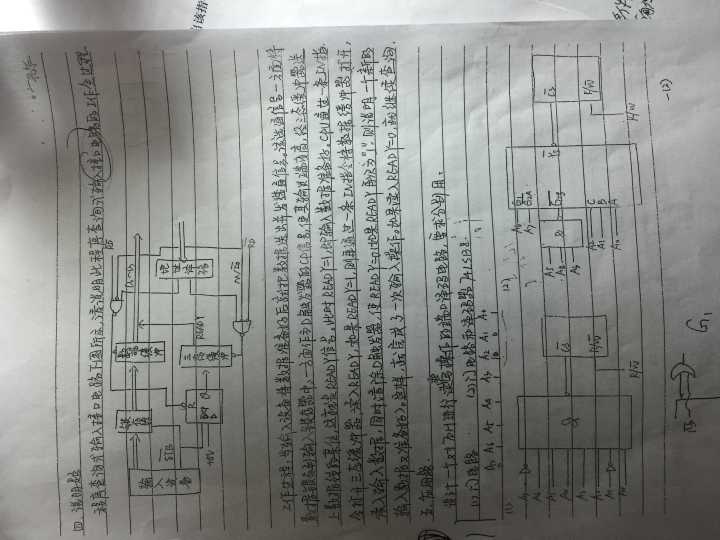 四. 说明题
程序查询式输入接口电路下图所示,请说明此程序查询式输入接口电路的工作全过程.
输入设备
锁存器
数据缓冲
三态缓冲
地址译码
STB
+5V
D
R
Q
READY
M/IO
RD
RD
工作过程:当输入设备将数据准备好后就把数据送出并发选通信号,该选通信号一方面将
数据锁存到输入锁存器中,一方面作为D触发器的CP信号,使其输出端为高,经三态缓冲器送
上数据线的某位,这就是READY信号,此时READY=1,即输入数据准备好,CPU通过一条IN指
令打开三态缓冲器,读入READY,如果READY=1,则再通过一条IN指令将数据缓冲器打开,
读入输入数据,同时清除D触发器,使READY=0,如果READY再次为"1",则说明一个新的
输入数据又准备好了,这样,就完成了一次输入操作,如果读入READY=0,就继续查询.
五. 应用题
设计一个对70H进行读写操作的端口译码电路,要求分别用:
(1) 门电路 (2) 门电路和译码器74LS138
A7 A6 A5 A4 A3 A2 A1 A0
(1)
(2)
&
CS
R/W
R/W
A6
A7
G1
G2A
G2B
A5
A4
A3
A2
A1
A0
C
B
A
CS
R/W
R/W
G1
-(2)
当该指